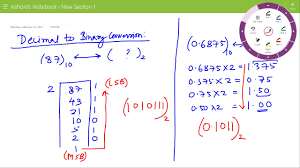 Kishore's Notebook - New Section 1
Decimal to Binary Conversion:
(87)10 ↔ ( ? )2
2 87 1 (LSB)
43 1
21 1
10 0
5 1
2 0
1
(MSB)
(1010111)2
(0.6875)10 ↔
0.6875×2 = 1.375
0.375×2 = 0.75
0.75×2 = 1.50
0.50×2 = 1.00
(0.1011)2